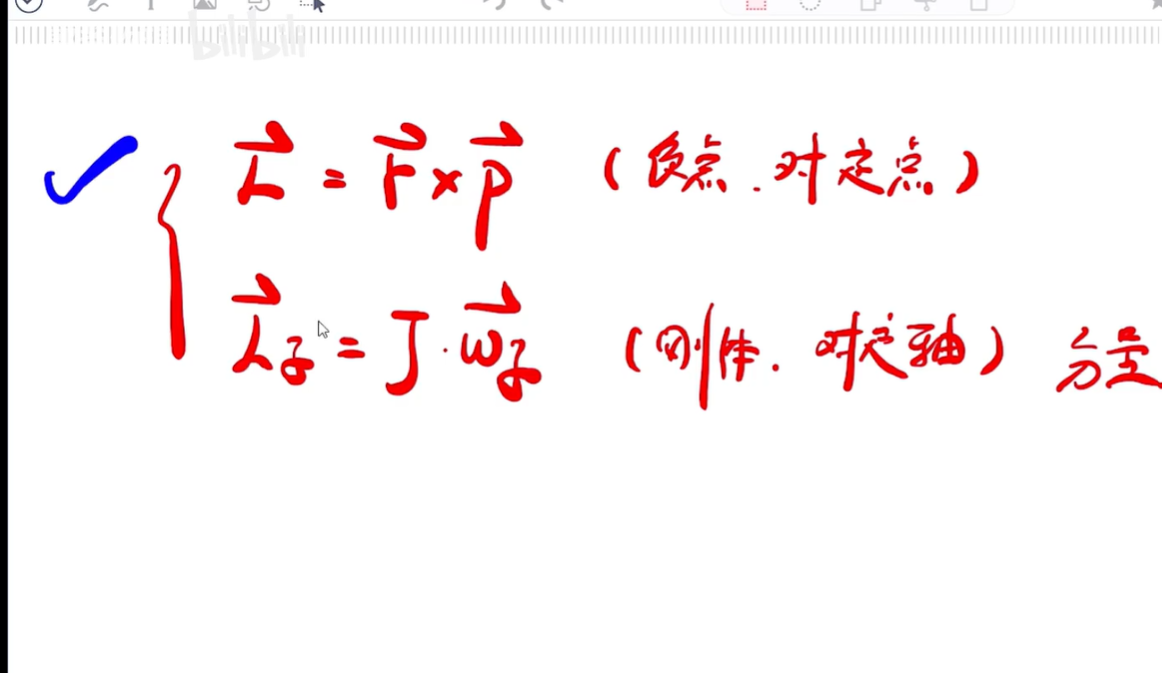 bilibili
L⃗ = r⃗ × p⃗ (质点.对定点)
L⃗z = J·ω⃗z (刚体.对定轴) 分量